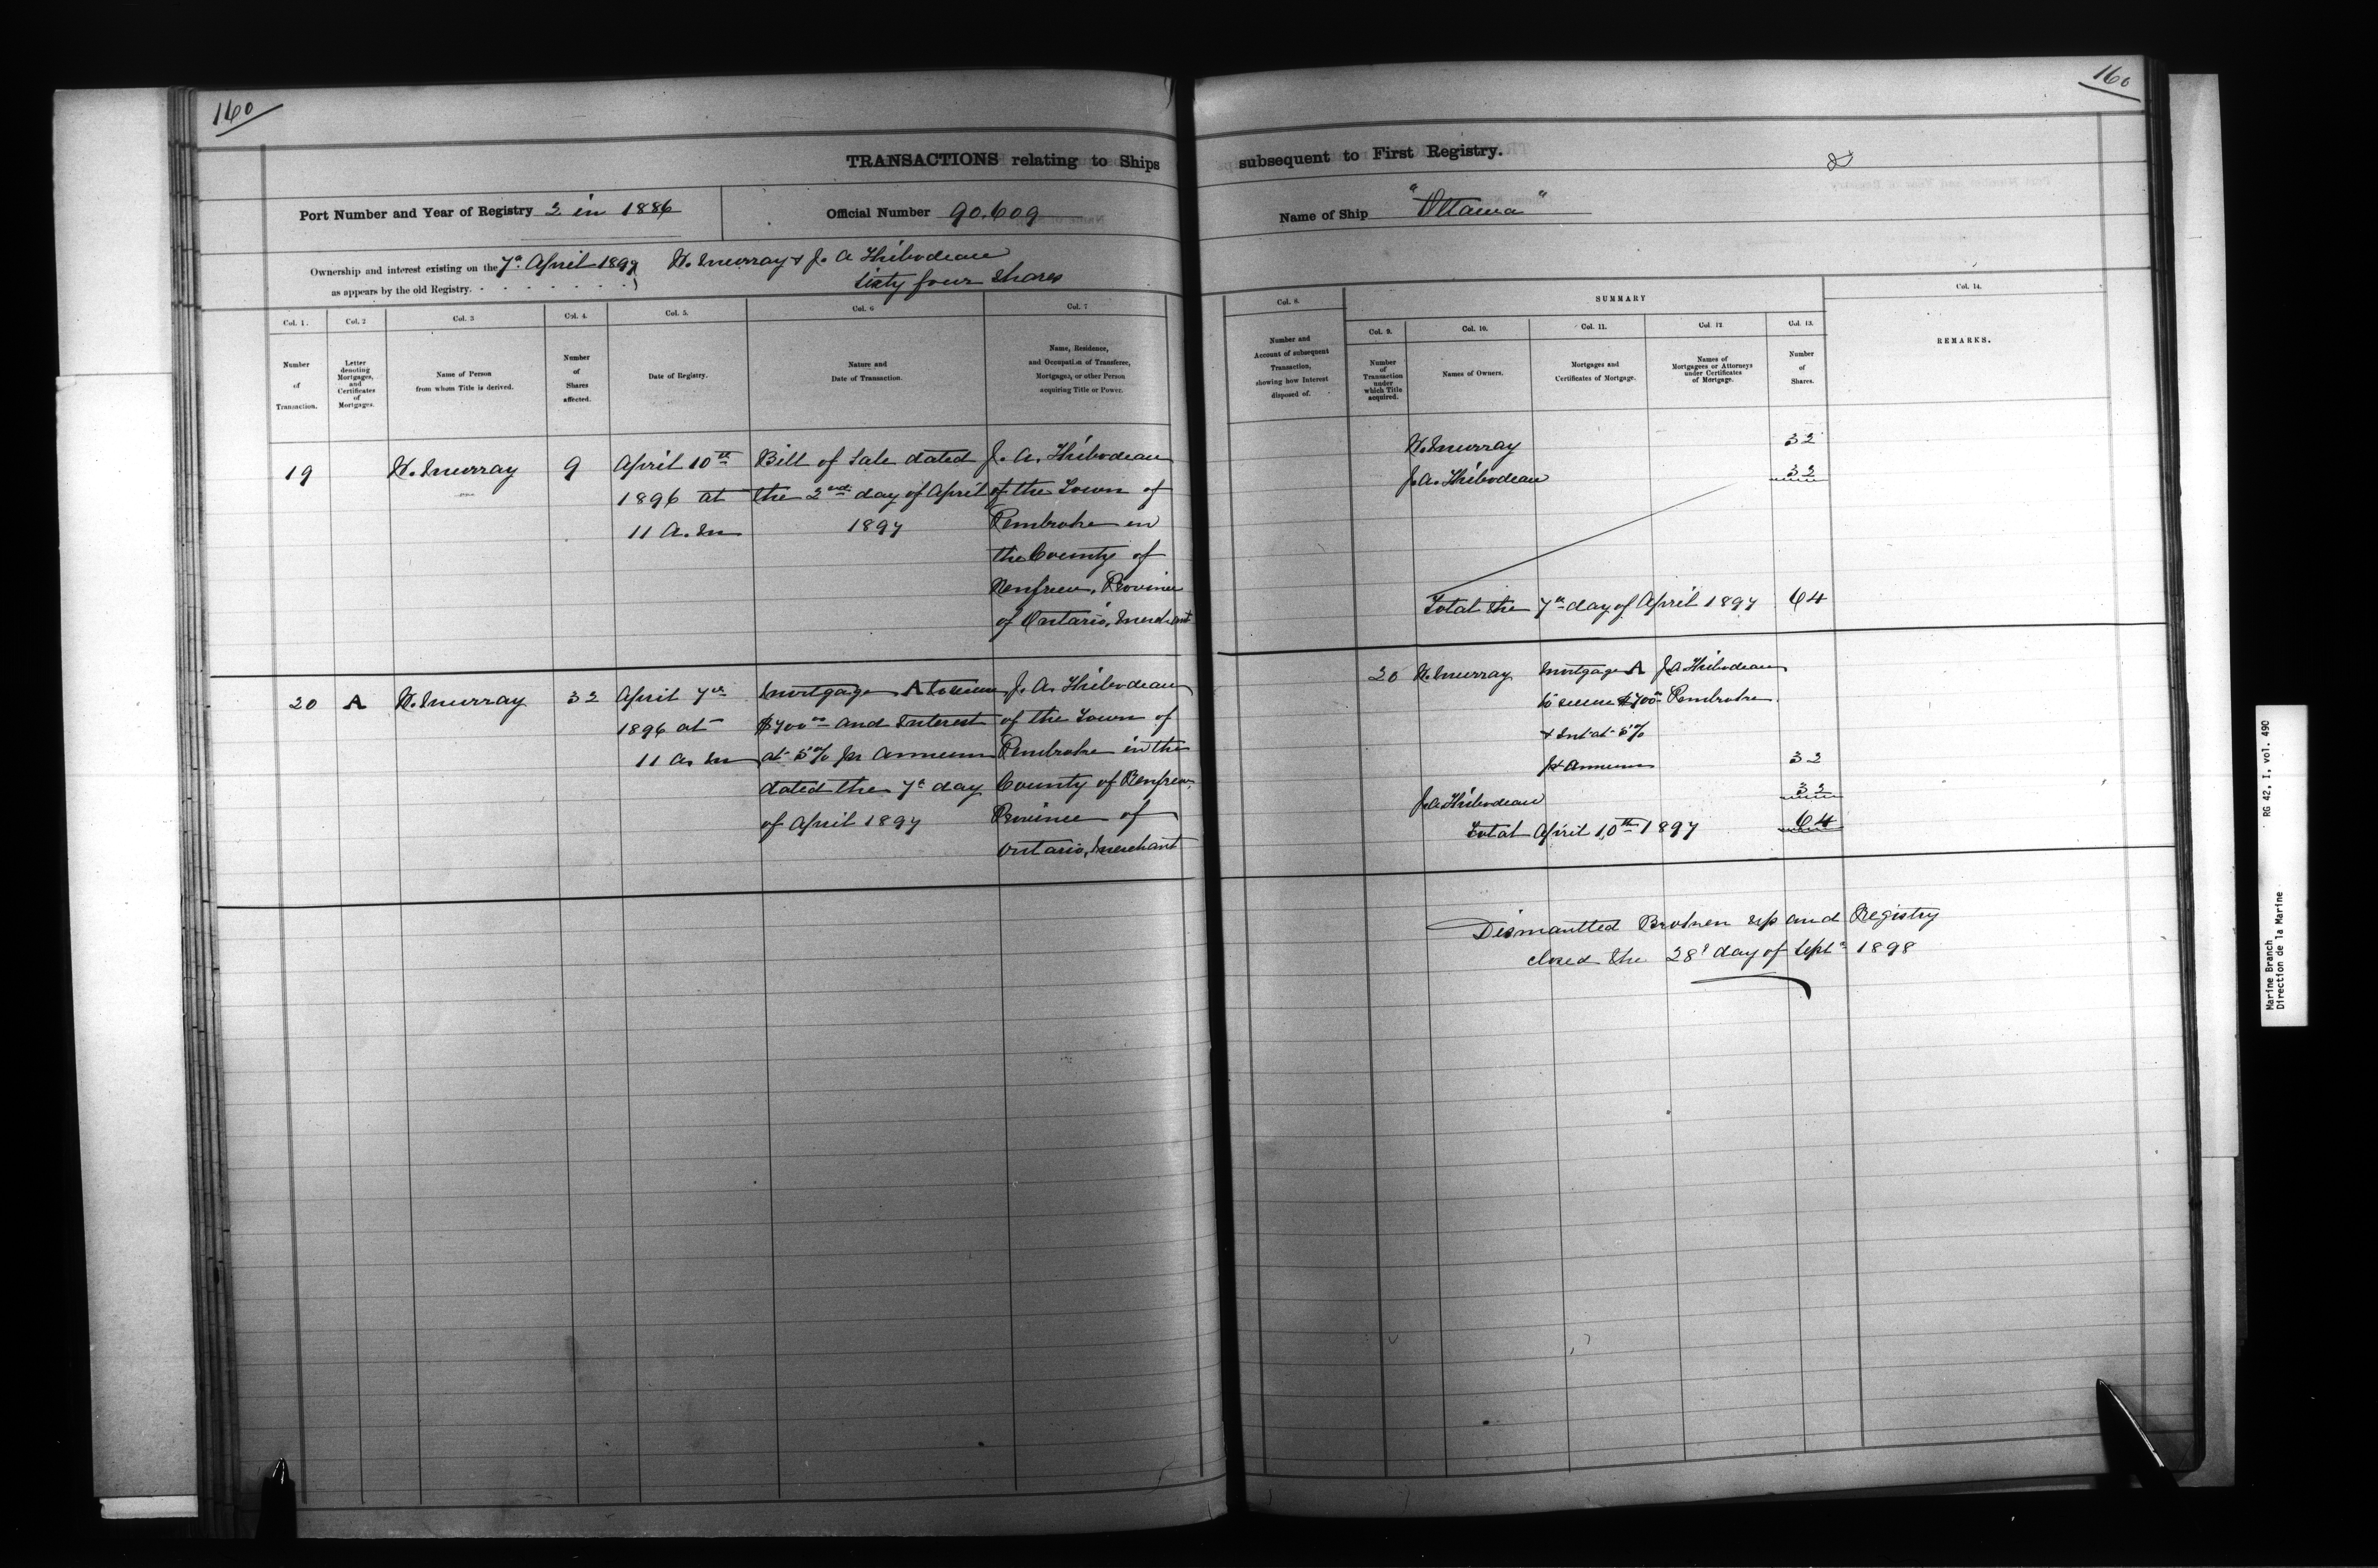 160
160
TRANSACTIONS relating to Ships subsequent to First Registry.
Port Number and Year of Registry 2 in 1886
Official Number 90.609
Name of Ship "Ottawa"
Ownership and interest existing on the 7th April 1897 W. Murray & J. A Thibodeau
as appears by the old Registry. sixty four shares
Col. 1.
Number
of
Transaction.
Col. 2
Letter
denoting
Mortgages,
and
Certificates
of
Mortgages.
Col. 3
Name of Person
from whom Title is derived.
Col. 4.
Number
of
Shares
affected.
Col. 5.
Date of Registry.
Col. 6
Nature and
Date of Transaction.
Col. 7
Name, Residence,
and Occupation of Transferee,
Mortgagee, or other Person
acquiring Title or Power.
Col. 8.
Number and
Account of subsequent
Transaction,
showing how Interest
disposed of.
SUMMARY
Col. 9.
Number
of
Transaction
under
which Title
acquired.
Col. 10.
Names of Owners.
Col. 11.
Mortgages and
Certificates of Mortgage.
Col. 12
Names of
Mortgagees or Attorneys
under Certificates
of Mortgage.
Col. 13.
Number
of
Shares.
Col. 14.
REMARKS.
19
W. Murray
9
April 10th
1896 at
11 A. M
Bill of Sale dated
the 2nd day of April
1897
J. A. Thibodeau
of the Town of
Pembroke in
the County of
Renfrew, Province
of Ontario, Merchant
W. Murray 32
J. A. Thibodeau 32
Total the 7th day of April 1897 64
20
A
W. Murray
32
April 7th
1896 at
11 a. m
Mortgage A to secure
$700 00 and Interest
at 5% per annum
dated the 7th day
of April 1897
J. A. Thibodeau
of the Town of
Pembroke in the
County of Renfrew
Province of
Ontario, Merchant
20 W. Murray Mortgage A J A Thibodeau
to secure $700 00 Pembroke
& Int at 5%
per annum 32
J. A. Thibodeau 32
Total April 10th 1897 64
Dismantled Broken up and Registry
closed the 28th day of Sept 1898
Marine Branch RG 42, I, vol. 490
Direction de la Marine